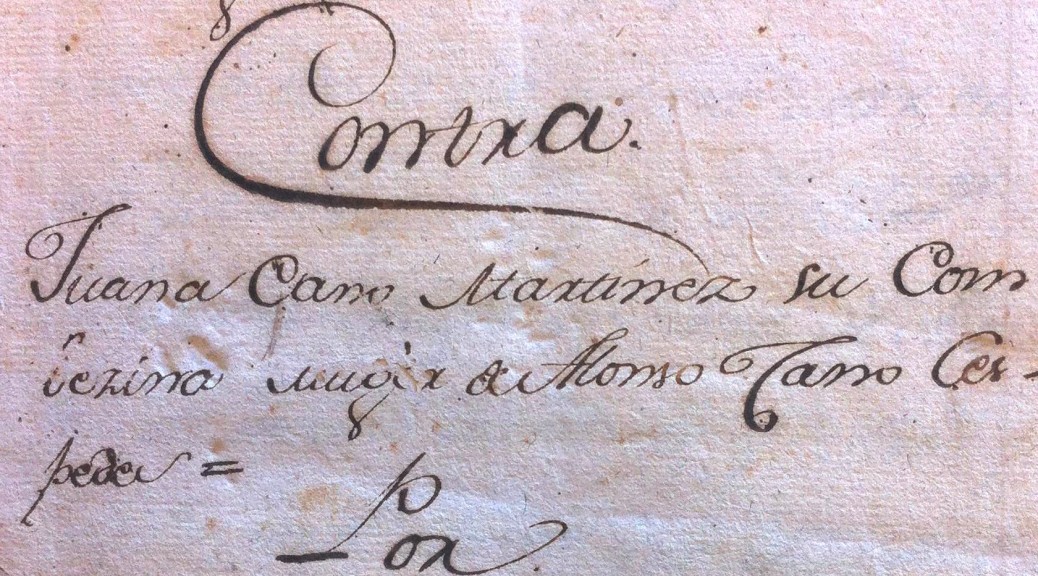 Contra.
Juana Cano Martinez su Con
vezina muger de Alonso Cano Ces-
pedes =
Por